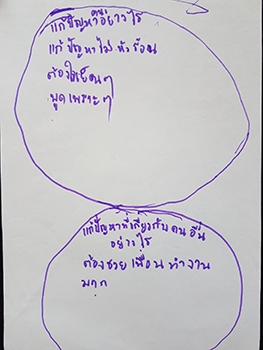 แก้ปัญหาตนเองอย่างไร
แก้ปัญหาไม่หัวร้อน
ต้องใจเย็นๆ
พูดเพราะๆ
แก้ปัญหาที่เกี่ยวกับคนอื่น
อย่างไร
ต้องช่วยเพื่อนทำงาน
มาก